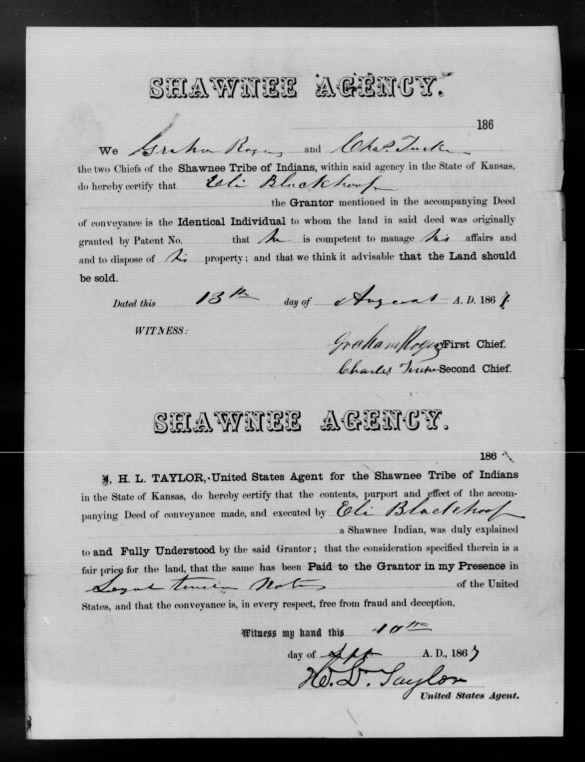 SHAWNEE AGENCY.
186
We Graham Rogers and Chas. Tucker
the two Chiefs of the Shawnee Tribe of Indians, within said agency in the State of Kansas,
do hereby certify that Eli Blackhoof
the Grantor mentioned in the accompanying Deed
of conveyance is the Identical Individual to whom the land in said deed was originally
granted by Patent No. that he is competent to manage his affairs and
and to dispose of his property; and that we think it advisable that the Land should
be sold.
Dated this 13th day of August A. D. 1867.
WITNESS:
Graham Rogers First Chief.
Charles Tucker Second Chief.
SHAWNEE AGENCY.
186
I, H. L. TAYLOR, United States Agent for the Shawnee Tribe of Indians
in the State of Kansas, do hereby certify that the contents, purport and effect of the accom-
panying Deed of conveyance made, and executed by Eli Blackhoof
a Shawnee Indian, was duly explained
to and Fully Understood by the said Grantor; that the consideration specified therein is a
fair price for the land, that the same has been Paid to the Grantor in my Presence in
Legal tender Notes of the United
States, and that the conveyance is, in every respect, free from fraud and deception.
Witness my hand this 10th
day of Sept A. D., 1867
H. L. Taylor
United States Agent.